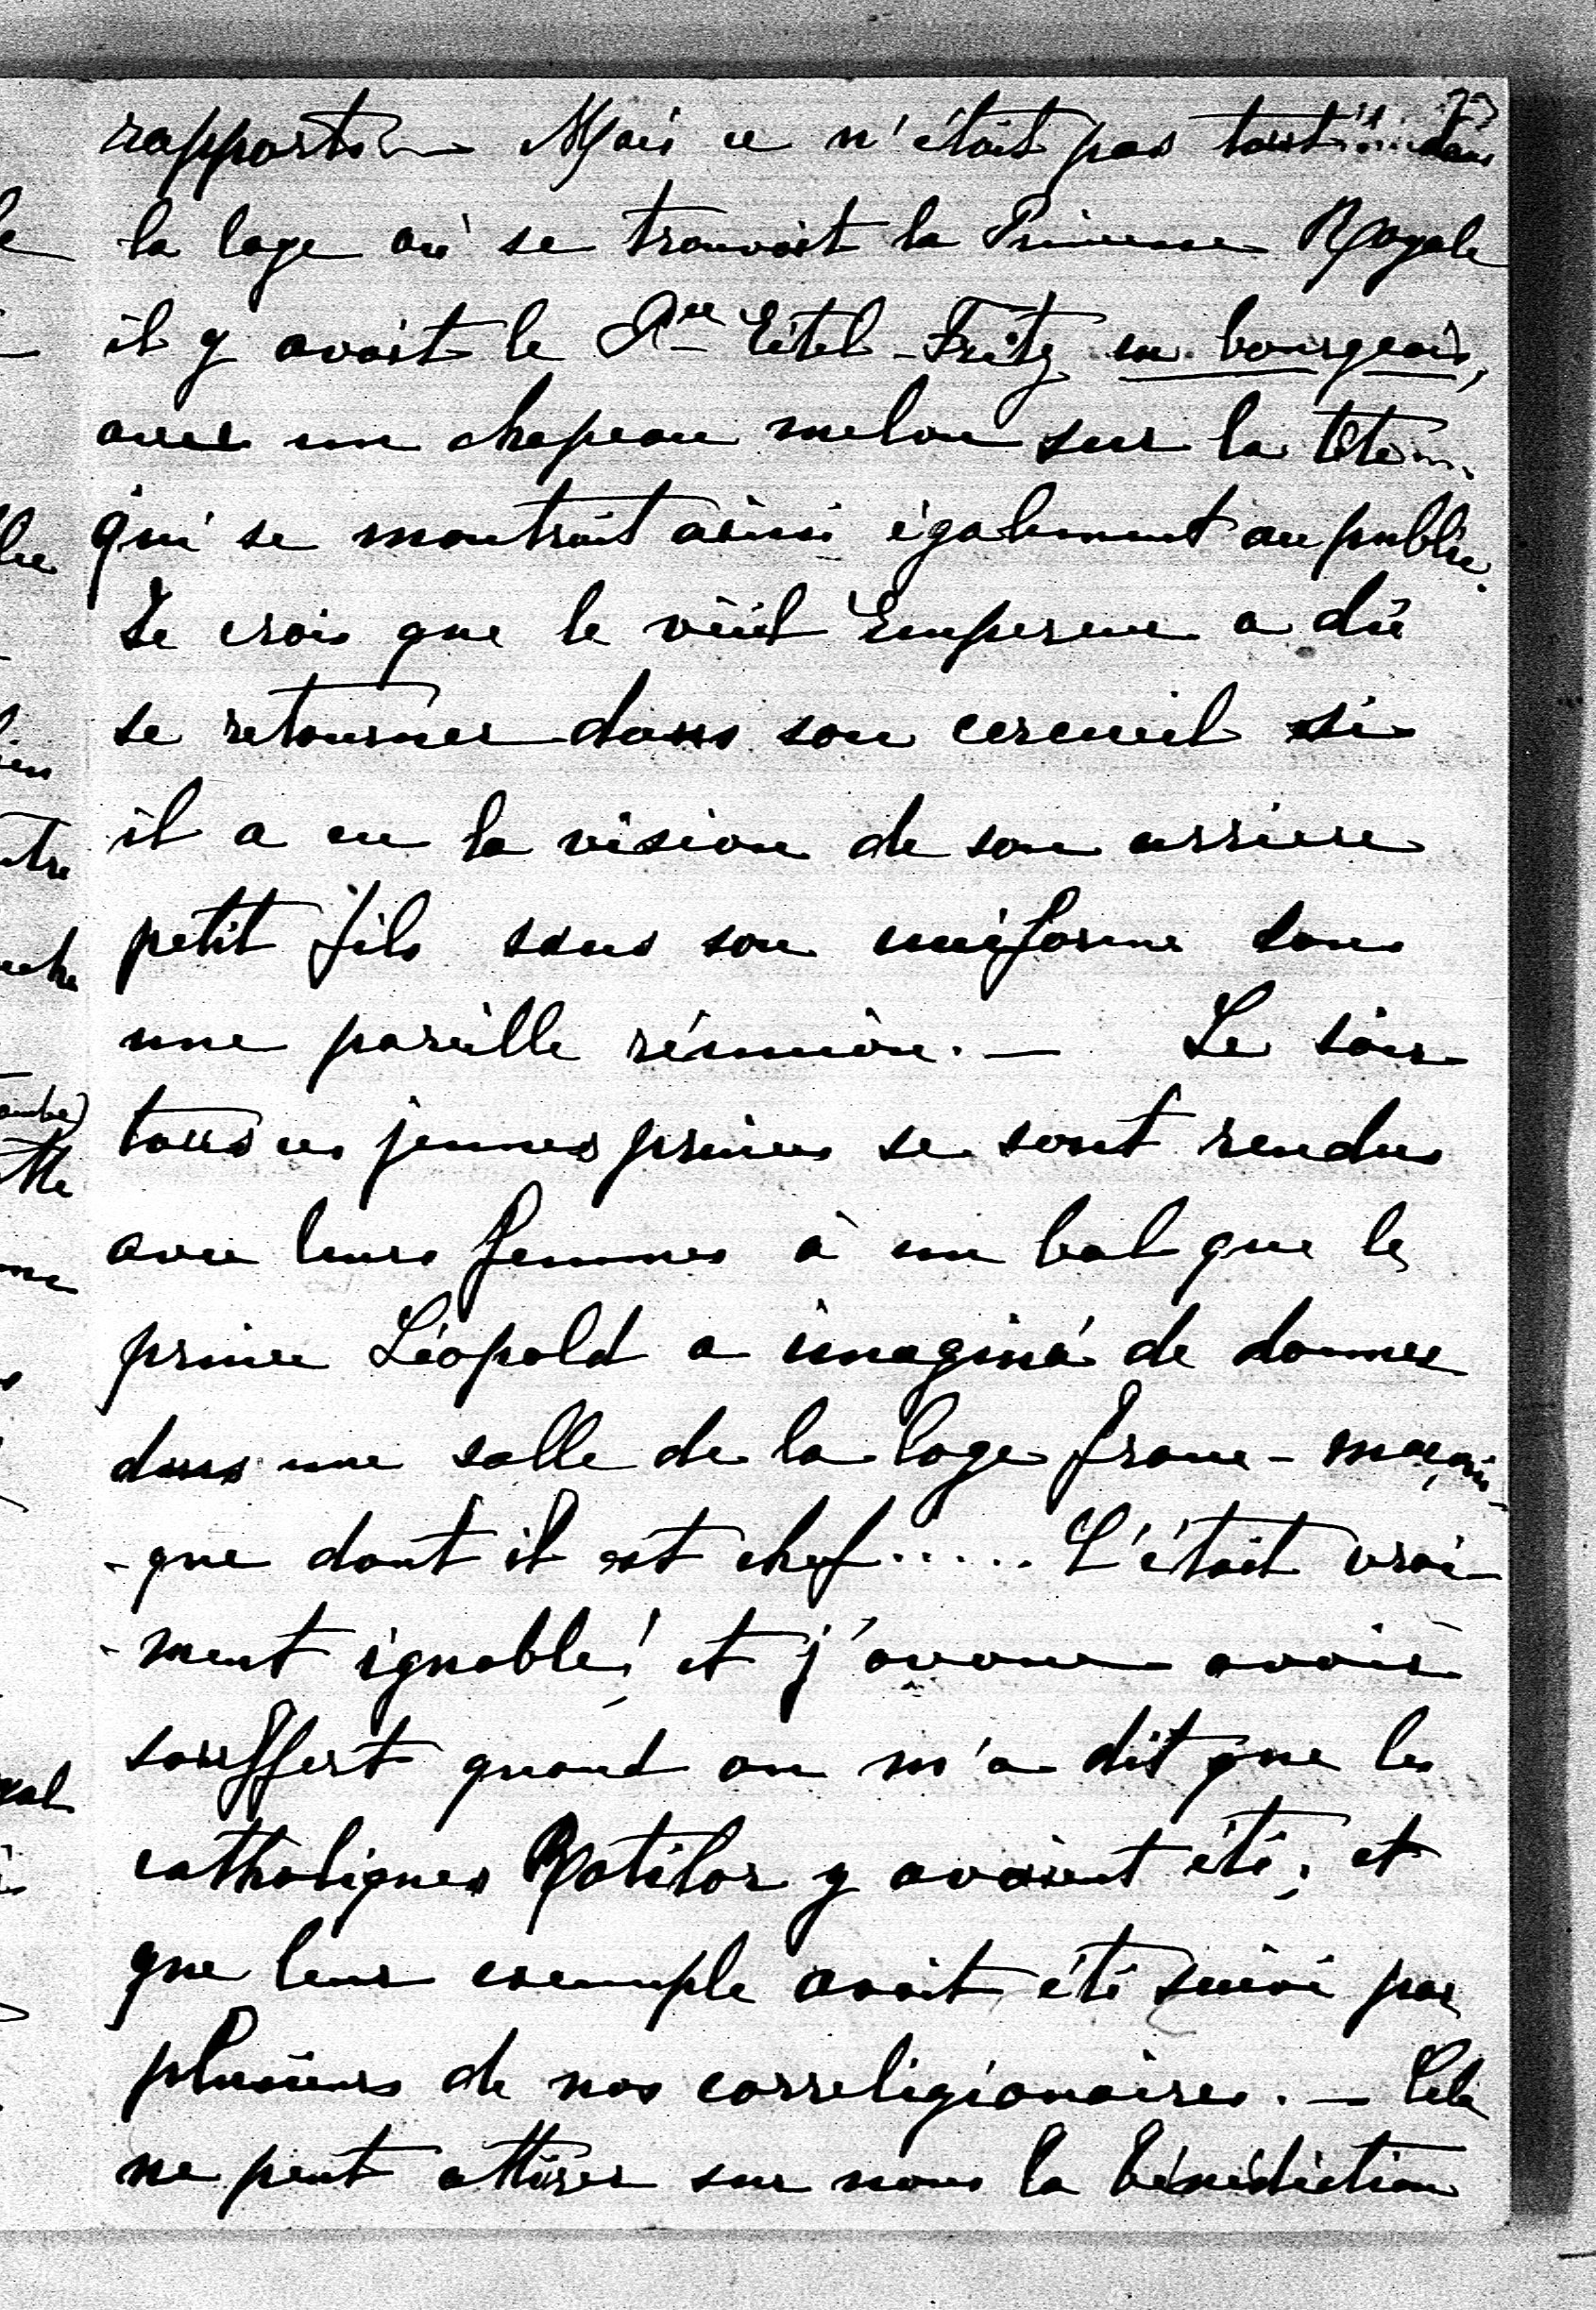 rapports — Mais ce n'était pas tout ... dans
la loge où se trouvait la Princesse Royale
il y avait le Pce Eitel-Fritz en bourgeois,
avec un chapeau melon sur la tête ...
qui se montrait ainsi également au public.
Je crois que le vieil Empereur a dû
se retourner dans son cercueil si
il a eu la vision de son arriere
petit fils sans son uniforme dans
une pareille réunion. — Le soir
tous ces jeunes princes se sont rendus
avec leurs femmes à un bal que le
prince Léopold a imaginé de donner
dans une salle de la loge franc-maçoni-
-que dont il est chef ..... C'était vrai-
-ment ignoble! et j'avoue avoir
souffert quand on m'a dit que les
catholiques Ratibor y avaient été; et
que leur exemple avait été suivi par
plusieurs de nos correligionaires. — Cela
ne peut attirer sur nous la bénédiction